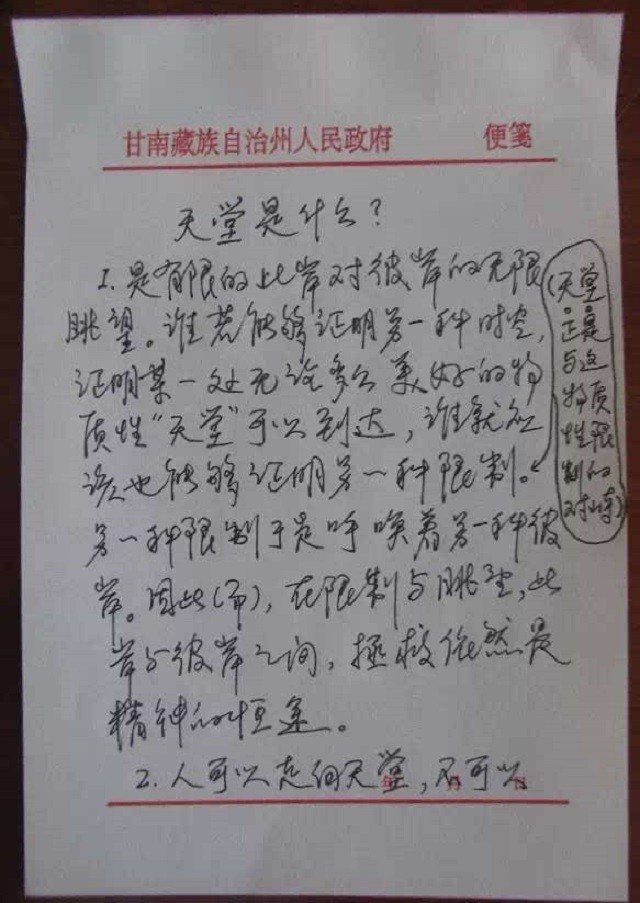 甘南藏族自治州人民政府 便笺
天堂是什么？
1.是有限的此岸对彼岸的无限
眺望。谁若能够证明另一种时空,
证明某一处无论多么美好的物
质性“天堂”可以到达，谁就应
该也能够证明另一种限制。
另一种限制于是呼唤着另一种彼
岸。因此(而),在限制与眺望、此
岸与彼岸之间，拯救依然是
精神的恒途。
2.人可以走向天堂，不可以
(天堂
正是
与这
物质
性限
制的
对峙)